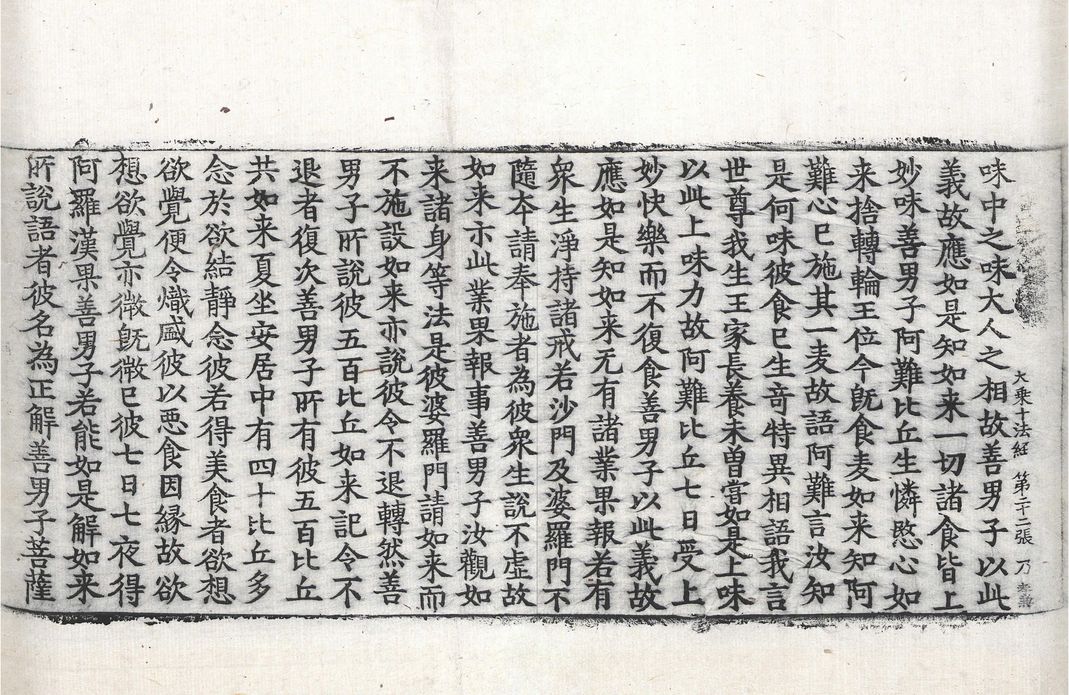 大乗十法経 第二十二張 乃
味中之味大人之相故善男子以此
義故應如是知如来一切諸食皆上
妙味善男子阿難比丘生憐愍心如
来捨轉輪王位今旣食麦如来知阿
難心已施其一麦故語阿難言汝知
是何味彼食已生竒特異相語我言
世尊我生王家長養未曽嘗如是上味
以此上味力故阿難比丘七日受上
妙快樂而不復食善男子以此義故
應如是知如来无有諸業果報若有
衆生淨持諸戒若沙門及婆羅門不
隨夲請奉施者為彼衆生說不虚故
如来示此業果報事善男子汝觀如
来諸身等法是彼婆羅門請如来而
不施設如来亦說彼令不退轉然善
男子所說彼五百比丘如来記令不
退者復次善男子所有彼五百比丘
共如来夏坐安居中有四十比丘多
念於欲結静念彼若得美食者欲想
欲覺便令熾盛彼以惡食因縁故欲
想欲覺亦微旣微已彼七日七夜得
阿羅漢果善男子若能如是解如来
所說語者彼名為正解善男子菩薩